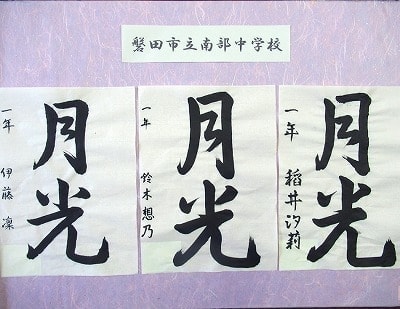 磐田市立南部中学校
月光
一年 稲井汐莉
月光
一年 鈴木想乃
月光
一年 伊藤凜